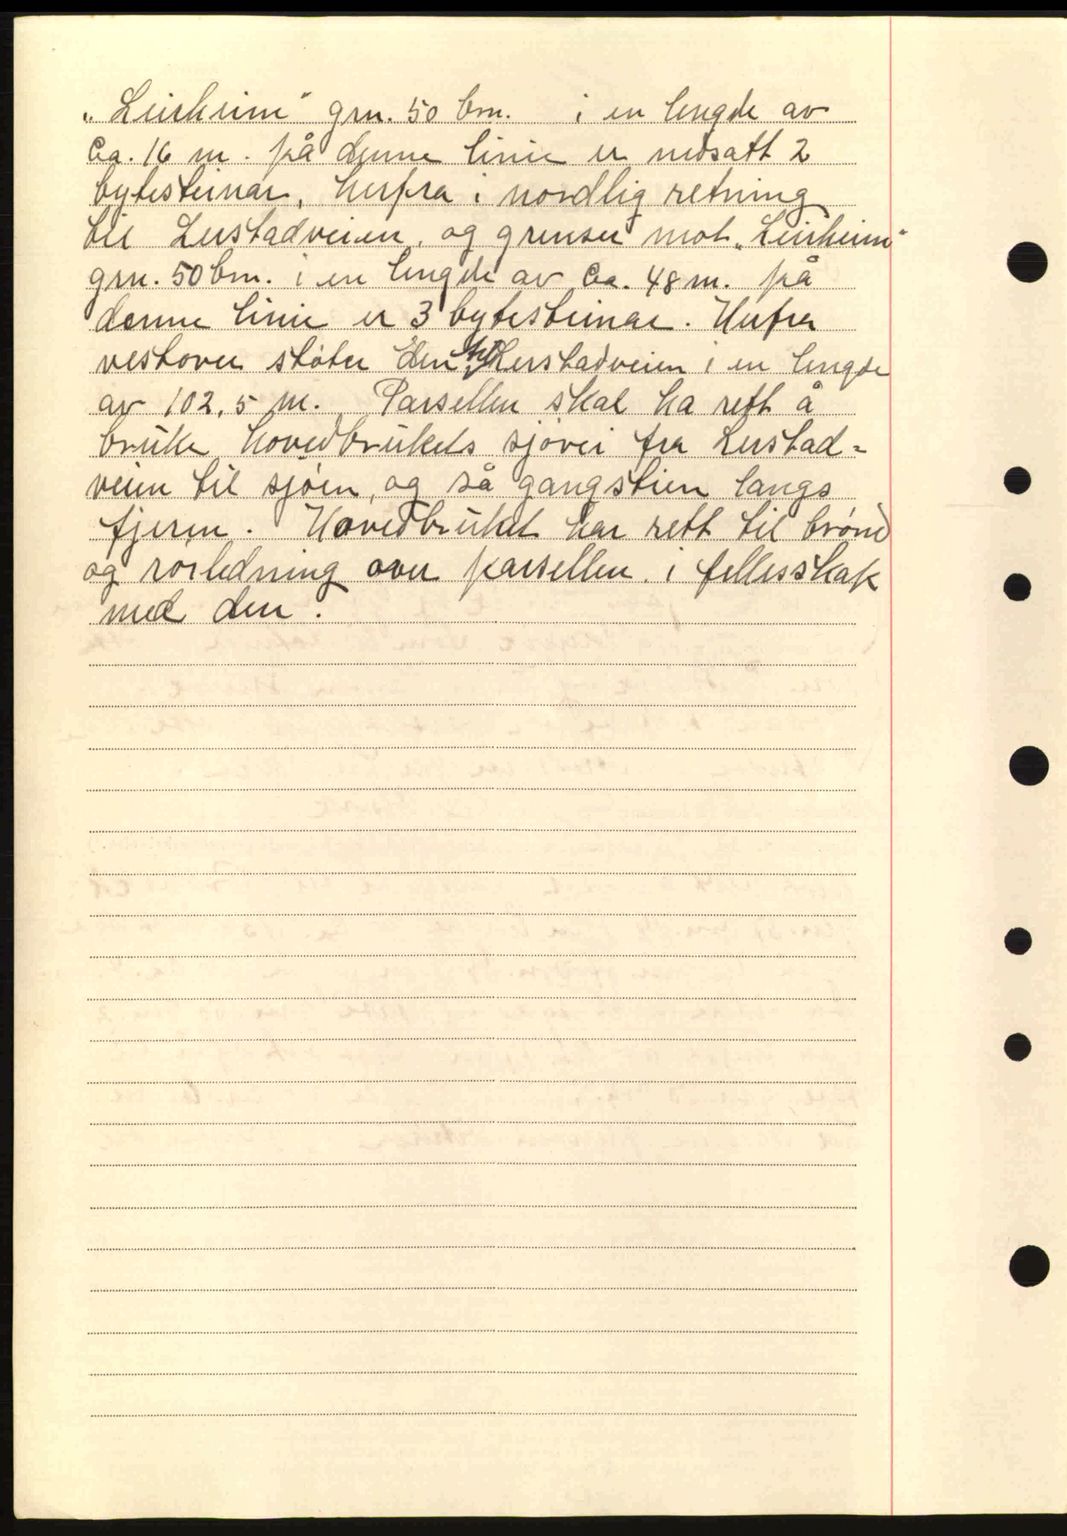 „Leirheim" grn. 50 brn. i en lengde av
ca. 16 m. på denne linie er nedsatt 2
bytesteinar. Herfra i nordlig retning
til Lerstadveien, og grenser mot „Leirheim"
grn. 50 brn. i en lengde av ca. 48 m. på
denne linie er 3 bytesteinar. Herfra
vestover støter den til Lerstadveien i en lengde
av 102,5 m. Parsellen skal ha rett å
bruke hovedbrukets sjøvei fra Lerstad-
veien til sjøen, og så gangstien langs
fjæren. Hovedbruket har rett til brønd
og rørledning over parsellen i fellesskap
med den.